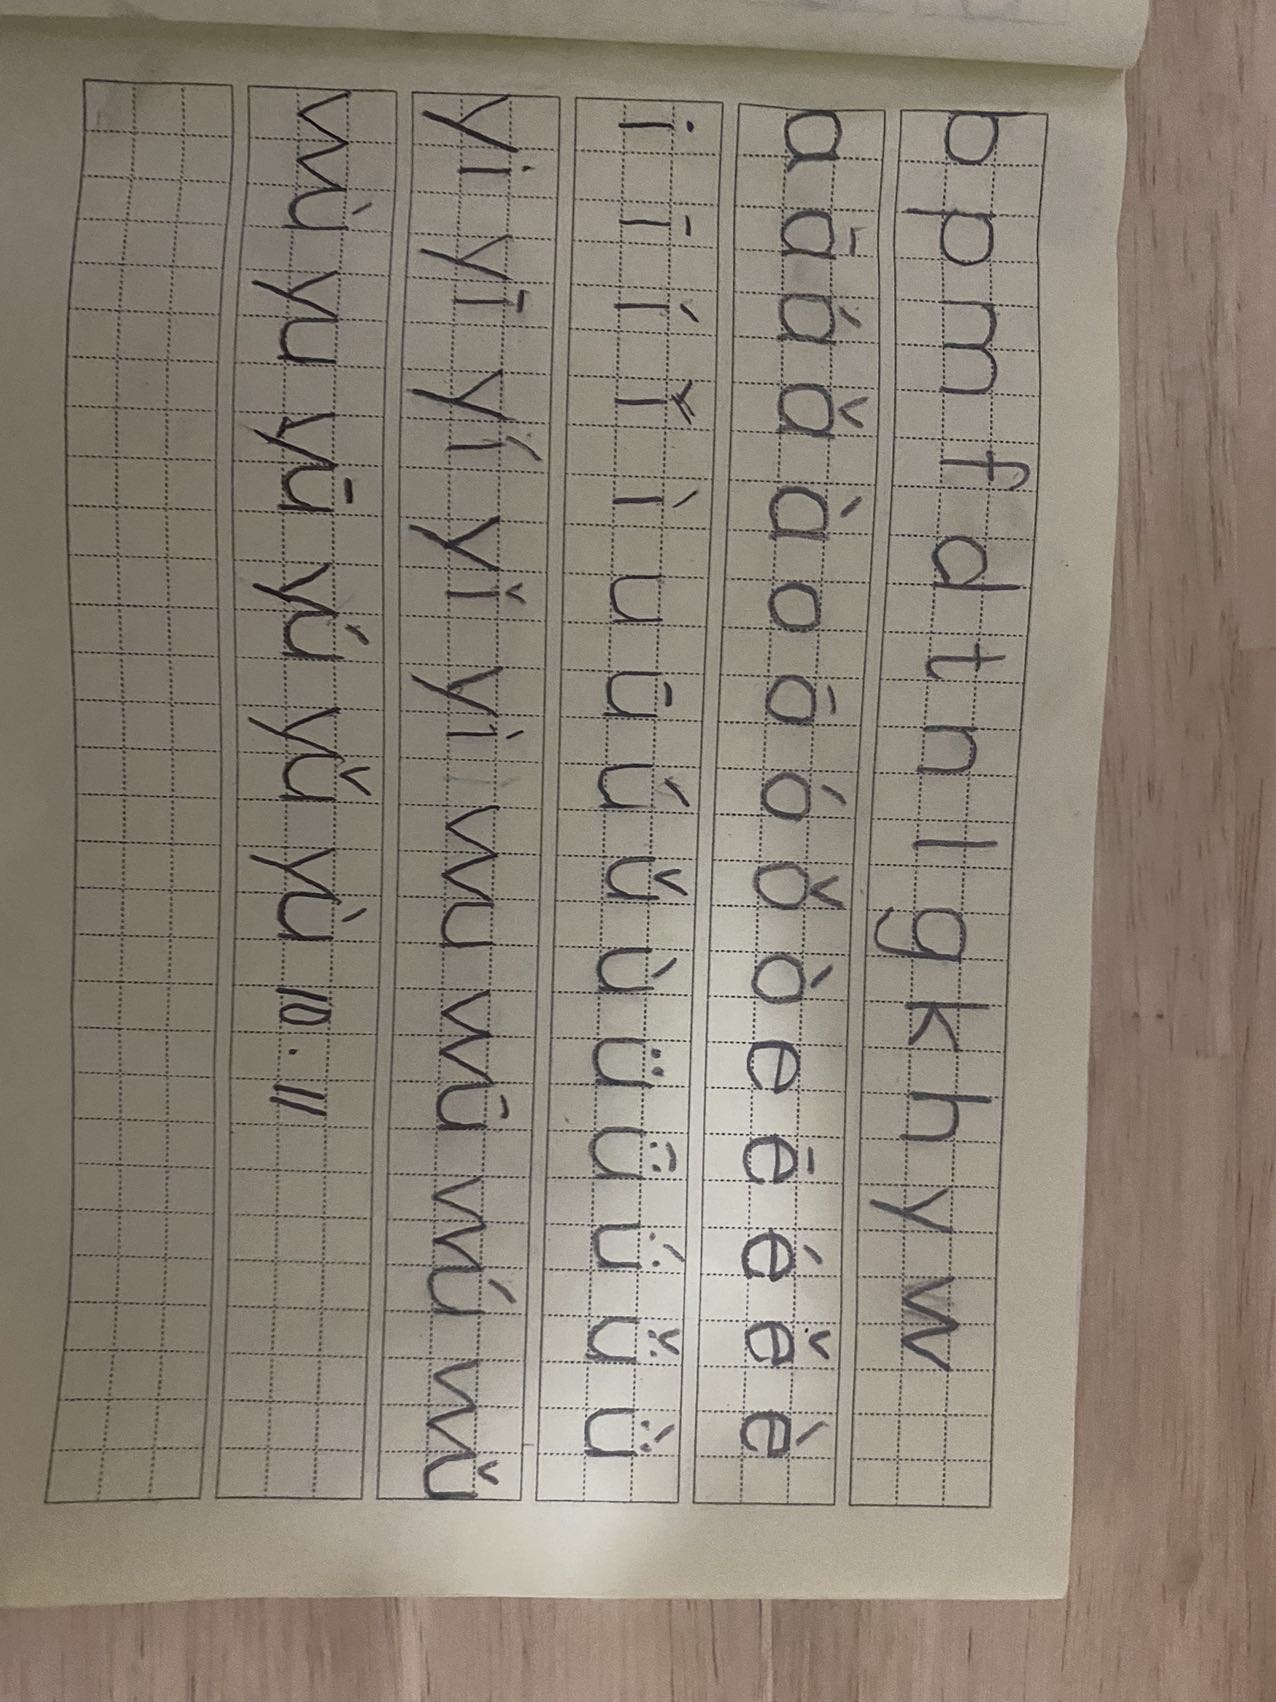 b p m f d t n l g k h y w
a ā á ǎ à o ō ó ǒ ò e ē é ě è
i ī í ǐ ì u ū ú ǔ ù ü ǖ ǘ ǚ ǜ
yi yī yí yǐ yì wu wū wú wǔ
wù yu yū yú yǔ yù 10.11